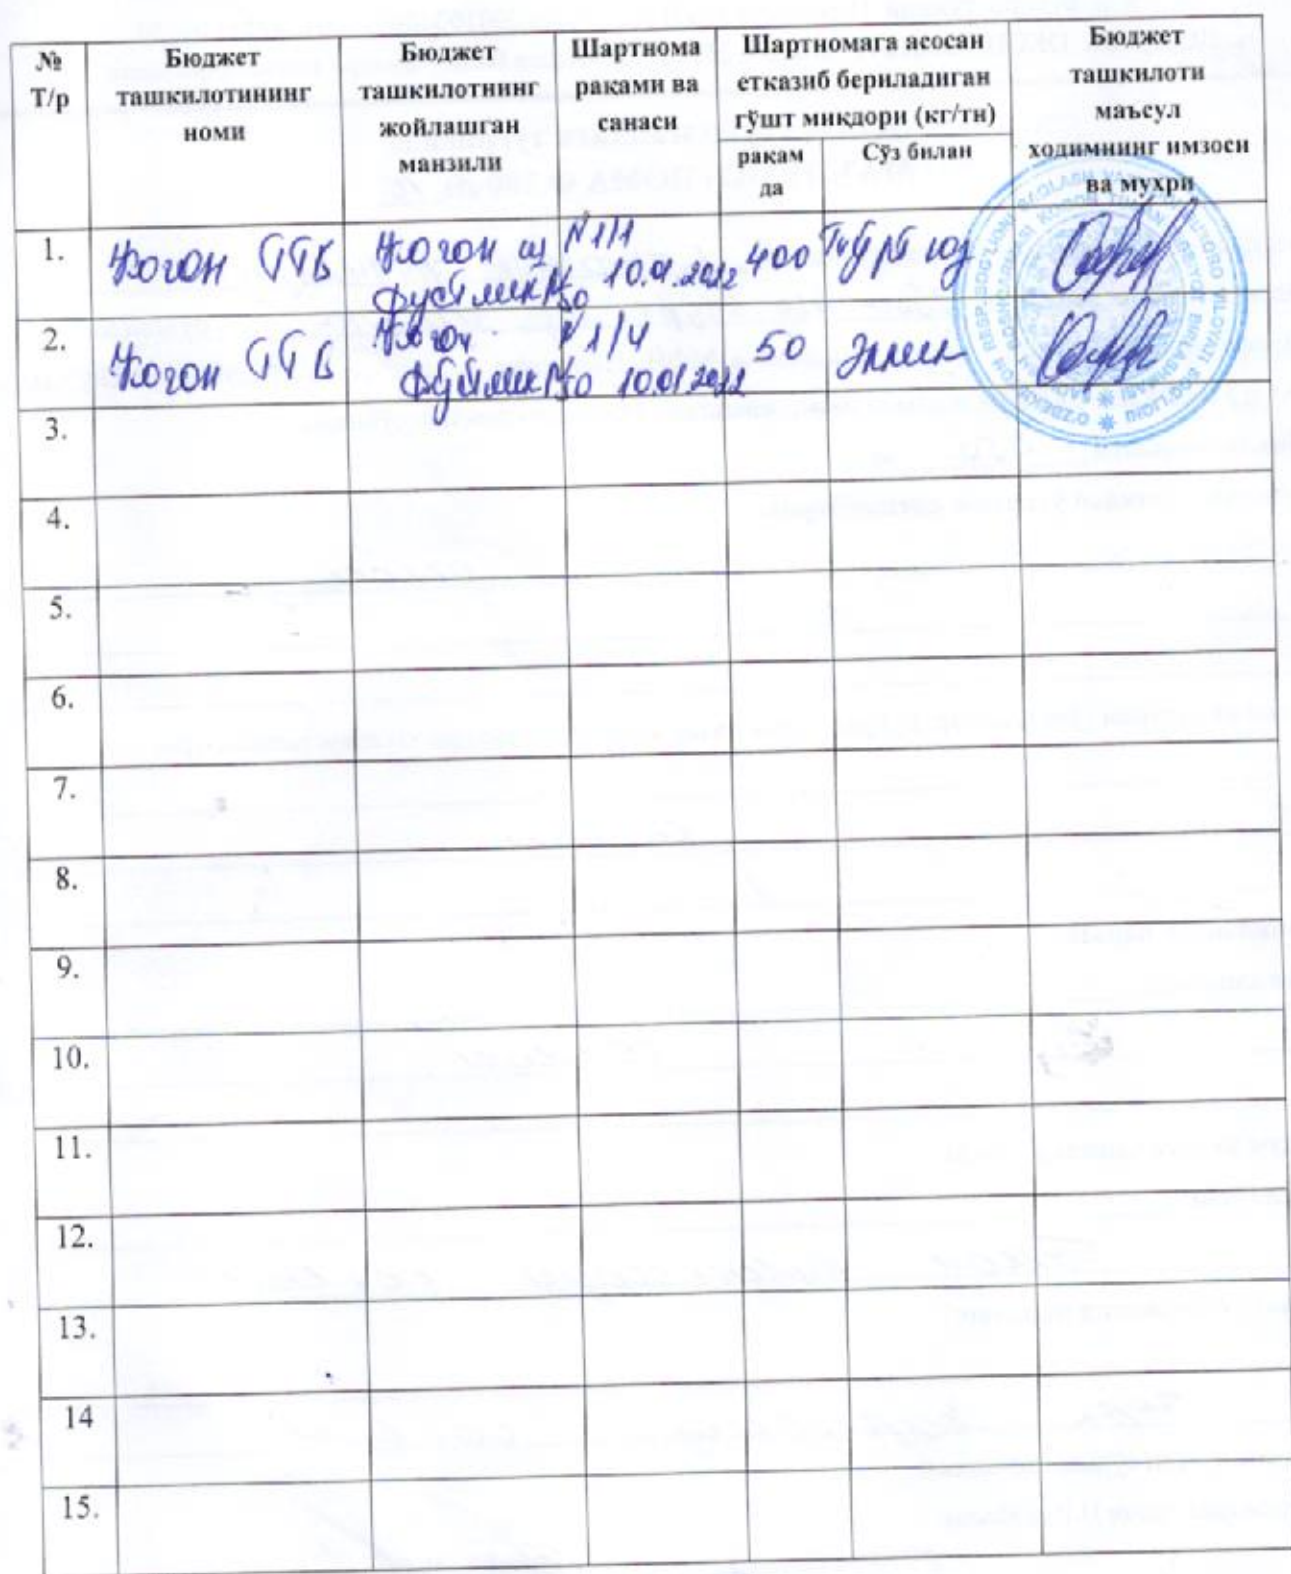 №
Т/р
Бюджет
ташкилотининг
номи
Бюджет
ташкилотнинг
жойлашган
манзили
Шартнома
рақами ва
санаси
Шартномага асосан
етказиб бериладиган
гўшт миқдори (кг/тн)
рақам
да
Сўз билан
Бюджет
ташкилоти
маъсул
ходимнинг имзоси
ва мухри
1.
Когон ТТБ
Когон ш
№1/1
10.01.2022
400
Тўрт юз
2.
Когон ТТБ
Когон
№1/4
10.01.2022
50
Эллик
3.
4.
5.
6.
7.
8.
9.
10.
11.
12.
13.
14
15.